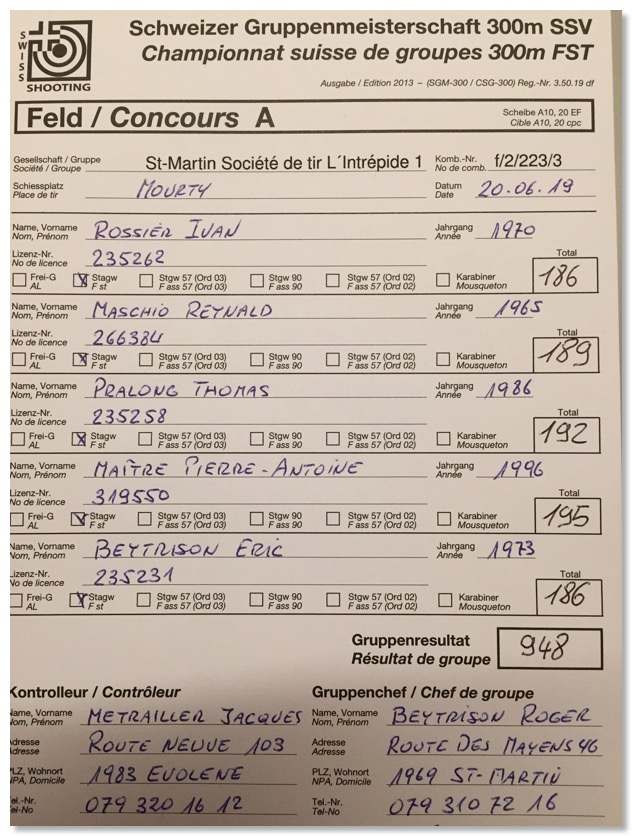 SWISS
SHOOTING
Schweizer Gruppenmeisterschaft 300m SSV
Championnat suisse de groupes 300m FST
Ausgabe / Edition 2013 – (SGM-300 / CSG-300) Reg.-Nr. 3.50.19 df
Feld / Concours A
Scheibe A10, 20 EF
Cible A10, 20 cpc
Gesellschaft / Gruppe
Société / Groupe
St-Martin Société de tir L´Intrépide 1
Komb.-Nr.
No de comb.
f/2/223/3
Schiessplatz
Place de tir
MOURTY
Datum
Date
20.06.19
Name, Vorname
Nom, Prénom
ROSSIER IVAN
Jahrgang
Année
1970
Lizenz-Nr.
No de licence
235262
Total
186
Frei-G
AL
X Stagw
F st
Stgw 57 (Ord 03)
F ass 57 (Ord 03)
Stgw 90
F ass 90
Stgw 57 (Ord 02)
F ass 57 (Ord 02)
Karabiner
Mousqueton
Name, Vorname
Nom, Prénom
MASCHIO REYNALD
Jahrgang
Année
1965
Lizenz-Nr.
No de licence
266384
Total
189
Frei-G
AL
X Stagw
F st
Stgw 57 (Ord 03)
F ass 57 (Ord 03)
Stgw 90
F ass 90
Stgw 57 (Ord 02)
F ass 57 (Ord 02)
Karabiner
Mousqueton
Name, Vorname
Nom, Prénom
PRALONG THOMAS
Jahrgang
Année
1986
Lizenz-Nr.
No de licence
235258
Total
192
Frei-G
AL
X Stagw
F st
Stgw 57 (Ord 03)
F ass 57 (Ord 03)
Stgw 90
F ass 90
Stgw 57 (Ord 02)
F ass 57 (Ord 02)
Karabiner
Mousqueton
Name, Vorname
Nom, Prénom
MAÎTRE PIERRE-ANTOINE
Jahrgang
Année
1996
Lizenz-Nr.
No de licence
319550
Total
195
Frei-G
AL
X Stagw
F st
Stgw 57 (Ord 03)
F ass 57 (Ord 03)
Stgw 90
F ass 90
Stgw 57 (Ord 02)
F ass 57 (Ord 02)
Karabiner
Mousqueton
Name, Vorname
Nom, Prénom
BEYTRISON ERIC
Jahrgang
Année
1973
Lizenz-Nr.
No de licence
235231
Total
186
Frei-G
AL
X Stagw
F st
Stgw 57 (Ord 03)
F ass 57 (Ord 03)
Stgw 90
F ass 90
Stgw 57 (Ord 02)
F ass 57 (Ord 02)
Karabiner
Mousqueton
Gruppenresultat
Résultat de groupe
948
Kontrolleur / Contrôleur
Name, Vorname
Nom, Prénom
METRAILLER JACQUES
Adresse
Adresse
ROUTE NEUVE 103
PLZ, Wohnort
NPA, Domicile
1983 EVOLENE
Tel.-Nr.
Tel-No
079 320 16 12
Gruppenchef / Chef de groupe
Name, Vorname
Nom, Prénom
BEYTRISON ROGER
Adresse
Adresse
ROUTE DES MAYENS 46
PLZ, Wohnort
NPA, Domicile
1969 ST-MARTIN
Tel.-Nr.
Tel-No
079 310 72 16